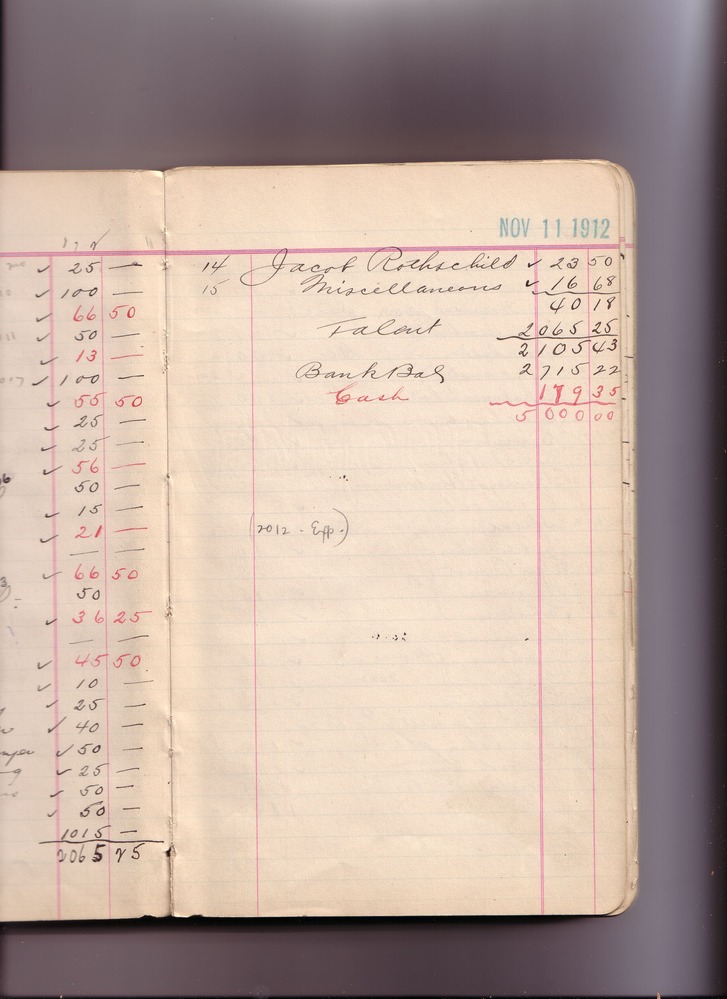 ✓ 25 —
✓ 100 —
✓ 66 50
✓ 50 —
✓ 13 —
✓ 100 —
✓ 55 50
✓ 25 —
✓ 25 —
✓ 56 —
50 —
✓ 15 —
✓ 21 —
— —
✓ 66 50
50
✓ 36 25
— —
✓ 45 50
✓ 10 —
✓ 25 —
✓ 40 —
✓ 50 —
✓ 25 —
✓ 50 —
✓ 50 —
1015 —
2065 25
NOV 11 1912
14 Jacob Rothschild ✓ 23 50
15 Miscellaneous ✓ 16 68
40 18
Talent 2065 25
2105 43
Bank Bal 2715 22
Cash 179 35
5 000 00
(2012 - Exp.)